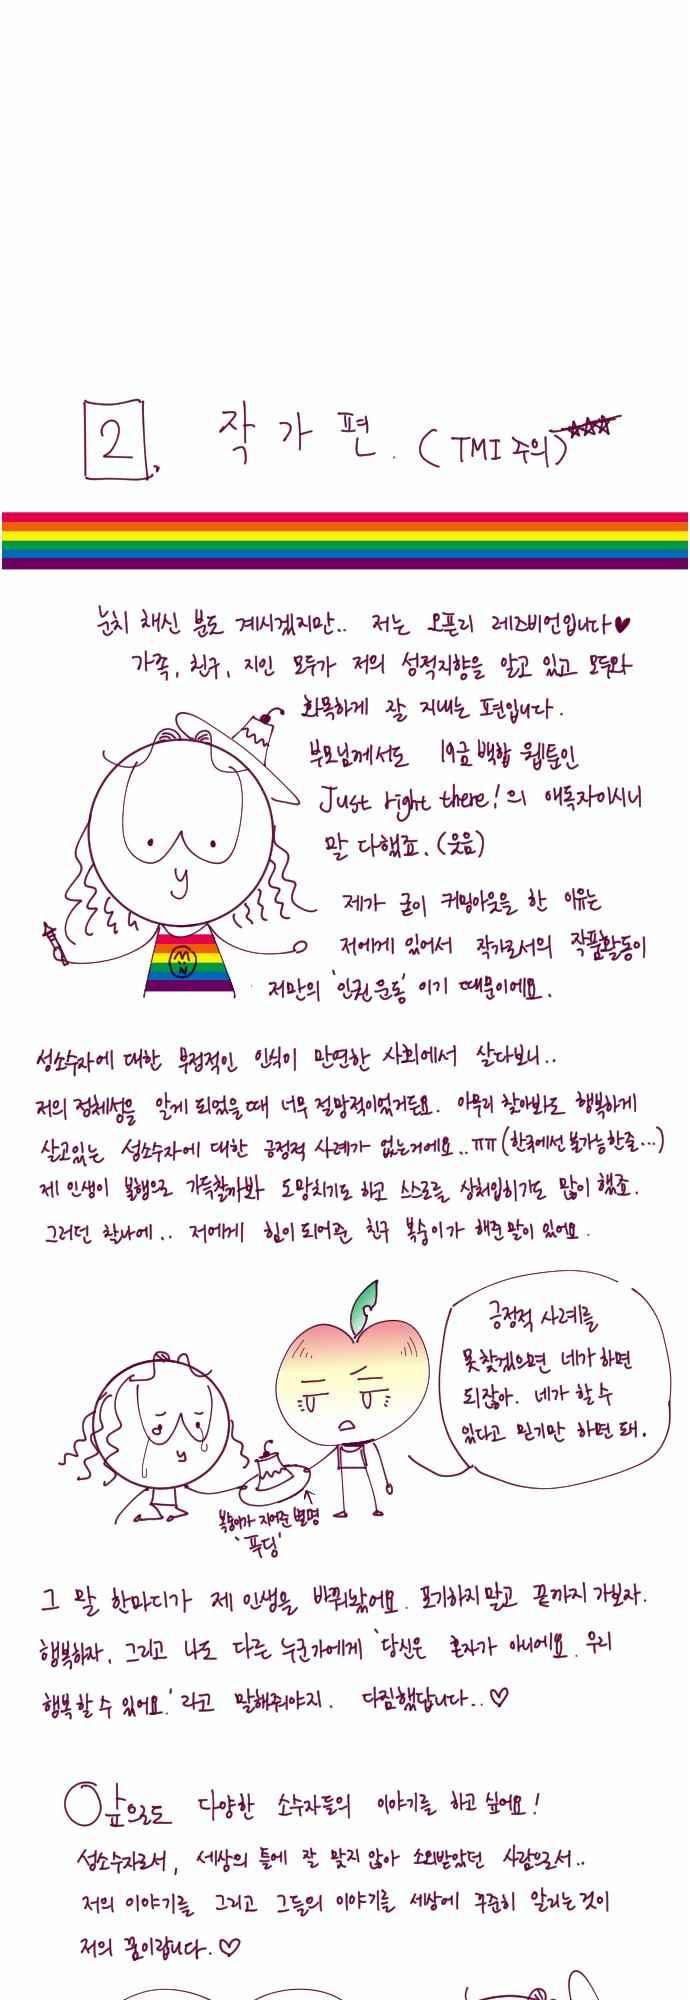 2. 작가편. (TMI 주의)
눈치 채신 분도 계시겠지만.. 저는 오픈리 레즈비언입니다♥
가족, 친구, 지인 모두가 저의 성적지향을 알고 있고 모두와
화목하게 잘 지내는 편입니다.
부모님께서도 19금 백합 웹툰인
Just right there!의 애독자이시니
말 다했죠. (웃음)
제가 굳이 커밍아웃을 한 이유는
저에게 있어서 작가로서의 작품활동이
저만의 '인권 운동' 이기 때문이에요.
성소수자에 대한 부정적인 인식이 만연한 사회에서 살다보니..
저의 정체성을 알게 되었을 때 너무 절망적이었거든요. 아무리 찾아봐도 행복하게
살고있는 성소수자에 대한 긍정적 사례가 없는거에요..ㅠㅠ (한국에선 불가능한줄...)
제 인생이 불행으로 가득찰까봐 도망치기도 하고 스스로를 상처입히기도 많이 했죠.
그러던 찰나에.. 저에게 힘이 되어준 친구 복숭이가 해준 말이 있어요.
긍정적 사례를
못 찾겠으면 네가 하면
되잖아. 네가 할 수
있다고 믿기만 하면 돼.
복숭이가 지어준 별명
'푸딩'
그 말 한마디가 제 인생을 바꿔놨어요. 포기하지 말고 끝까지 가보자.
행복하자. 그리고 나도 다른 누군가에게 '당신은 혼자가 아니에요. 우리
행복할 수 있어요.' 라고 말해줘야지. 다짐했답니다..♡
앞으로도 다양한 소수자들의 이야기를 하고 싶어요!
성소수자로서, 세상의 틀에 잘 맞지 않아 소외받았던 사람으로서..
저의 이야기를 그리고 그들의 이야기를 세상에 꾸준히 알리는 것이
저의 꿈이랍니다.♡